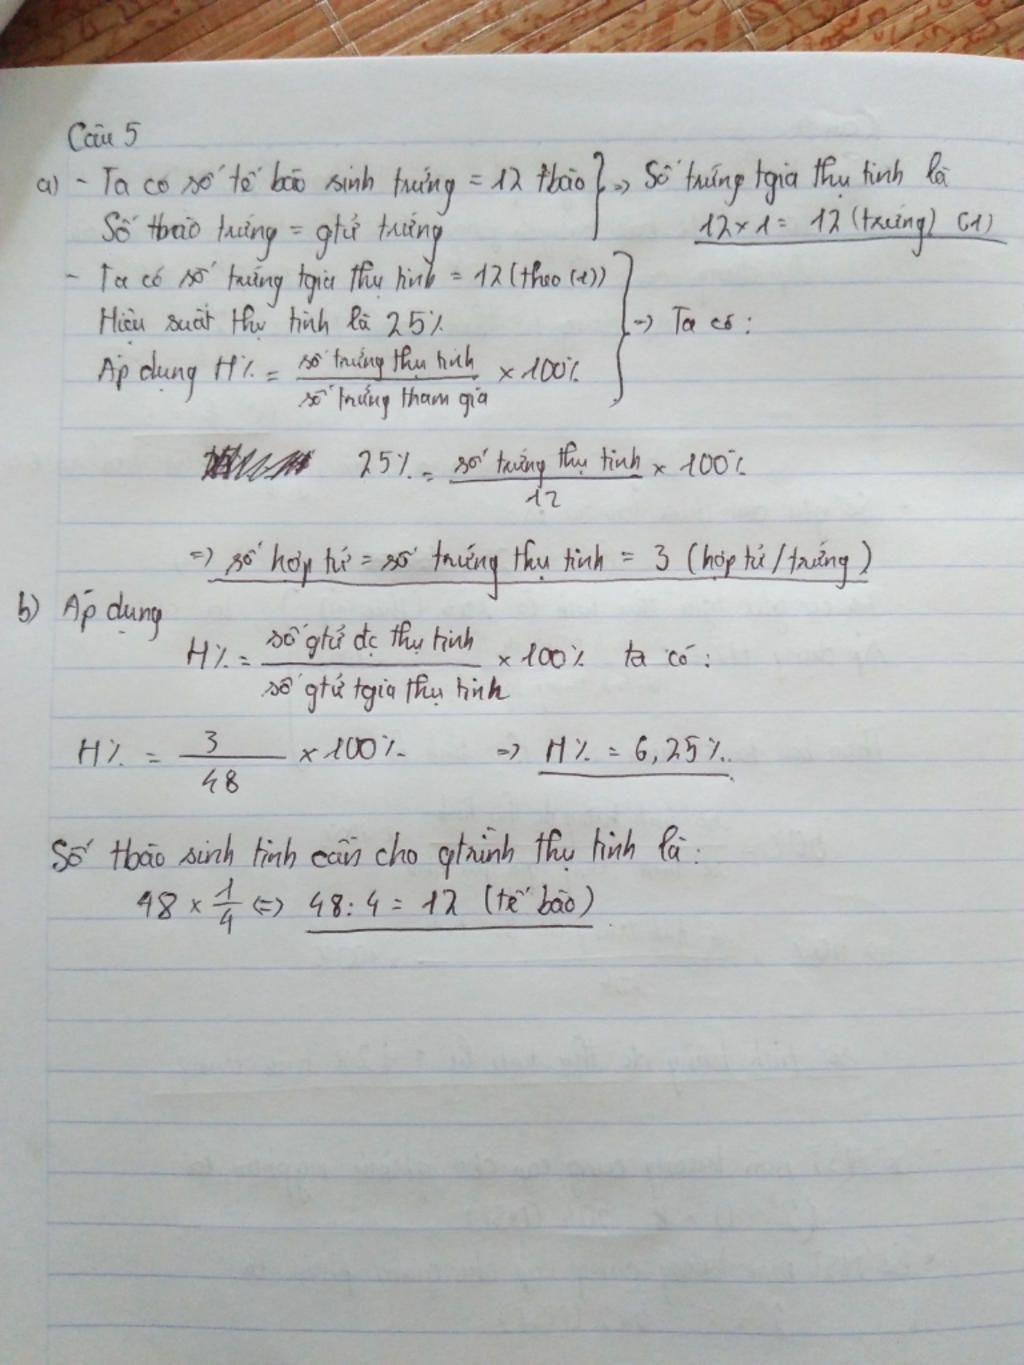 Câu 5
a) - Ta có số tế bào sinh trứng = 12 tbào } => Số trứng tgia thụ tinh là
Số tbào trứng = gtử trứng 12 x 1 = 12 (trứng) (1)
- Ta có số trứng tgia thụ tinh = 12 (theo (1))
Hiệu suất thụ tinh là 25% } => Ta có:
Áp dụng H% = số trứng thụ tinh / số trứng tham gia x 100%
25% = số trứng thụ tinh / 12 x 100%
=> số hợp tử = số trứng thụ tinh = 3 (hợp tử/trứng)
b) Áp dụng
H% = số gtử đc thụ tinh / số gtử tgia thụ tinh x 100% ta có:
H% = 3 / 48 x 100% => H% = 6,25%.
Số tbào sinh tinh cần cho qtrình thụ tinh là:
48 x 1/4 <=> 48 : 4 = 12 (tế bào)